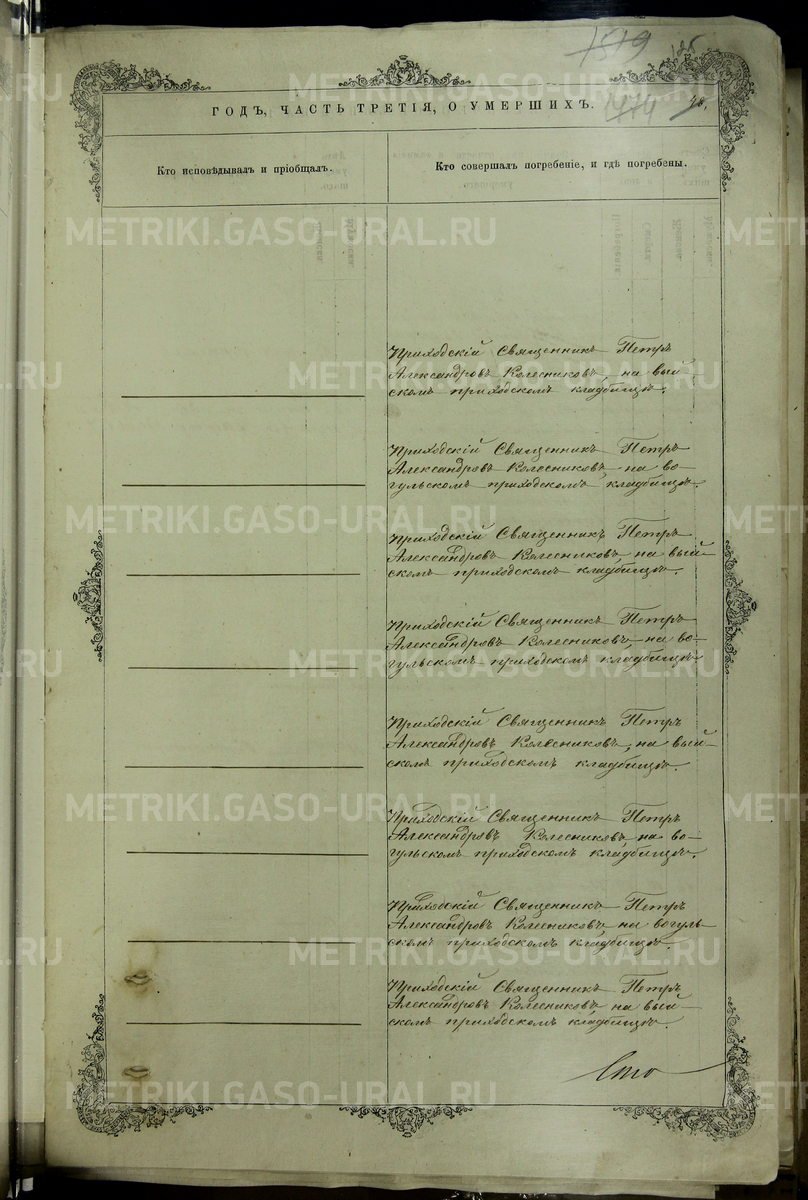 1519
185
ГОДЪ, ЧАСТЬ ТРЕТІЯ, О УМЕРШИХЪ.
Кто исповѣдывалъ и пріобщалъ.
Кто совершалъ погребеніе, и гдѣ погребены.
Приходскій Священникъ Петръ
Александровъ Колесниковъ, на вый-
скомъ приходскомъ кладбищѣ.
Приходскій Священникъ Петръ
Александровъ Колесниковъ, на во-
гульскомъ приходскомъ кладбищѣ.
Приходскій Священникъ Петръ
Александровъ Колесниковъ, на вый-
скомъ приходскомъ кладбищѣ.
Приходскій Священникъ Петръ
Александровъ Колесниковъ, на во-
гульскомъ приходскомъ кладбищѣ
Приходскій Священникъ Петръ
Александровъ Колесниковъ, на вый-
скомъ приходскомъ кладбищѣ.
Приходскій Священникъ Петръ
Александровъ Колесниковъ на во-
гульскомъ приходскомъ кладбищѣ.
Приходскій Священникъ Петръ
Александровъ Колесниковъ, на вогуль-
скомъ приходскомъ кладбищѣ.
Приходскій Священникъ Петръ
Александровъ Колесниковъ на вый-
скомъ приходскомъ кладбищѣ.
Сто
METRIKI.GASO-URAL.RU